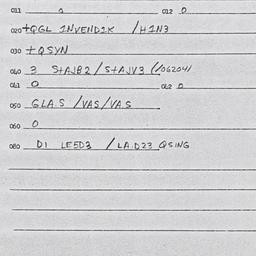 011 0 012 0
020 +QGL INVENDIK /H1N3
030 +QSYN
040 3 S+AJB2/S+AJV3 (/06204)
041 0 042 0
050 GLAS /VAS/VAS
060 0
080 D1 LE5D3 /LA.D23 QSING